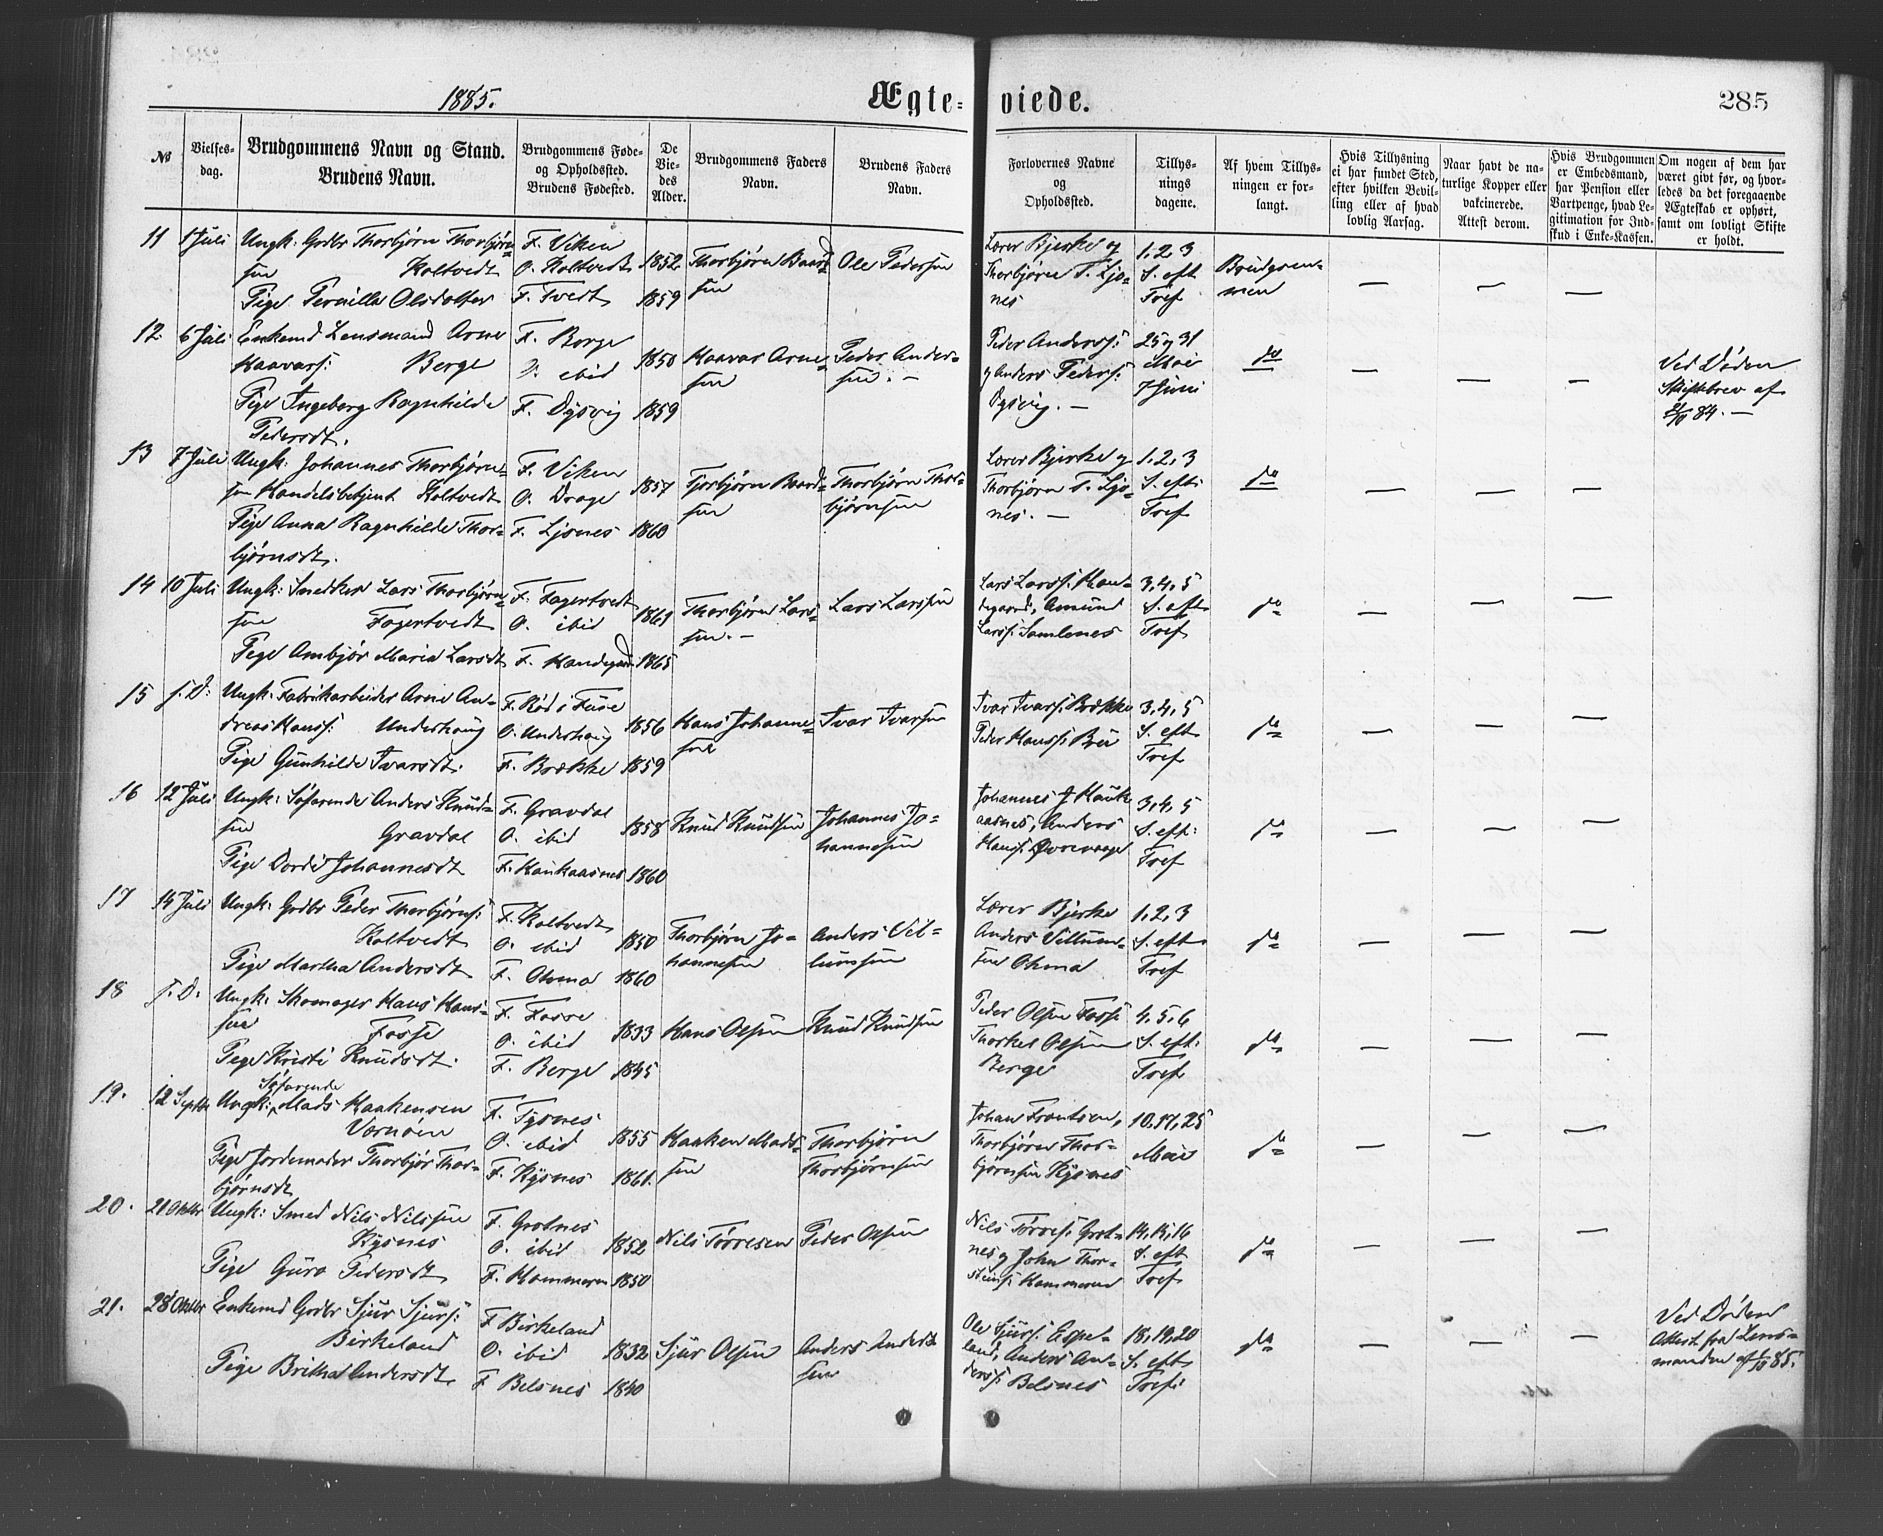 1885.
Ægte-viede.
285
No
Vielses-dag.
Brudgommens Navn og Stand.
Brudens Navn.
Brudgommens Føde- og Opholdsted.
Brudens Fødested.
De Viedes Alder.
Brudgommens Faders Navn.
Brudens Faders Navn.
Forlovernes Navne og Opholdsted.
Tillysnings dagene.
Af hvem Tillysningen er forlangt.
Hvis Tillysning ei har fundet Sted, efter hvilken Bevilling eller af hvad lovlig Aarsag.
Naar havt de naturlige Kopper eller vakcinerede. Attest derom.
Hvis Brudgommen er Embedsmand, har Pension eller Vartpenge, hvad Legitimation for Indskud i Enke-Kassen.
Om nogen af dem har været givt før, og hvorledes da det foregaaende Ægteskab er ophørt, samt om lovligt Skifte er holdt.
11 1 Juli Ungk: Gdbr Thorbjørn Thorbjørnsen Holtvedt F. Viken O. Holtvedt 1852 Thorbjørn Baardsen Ole Pedersen Lærer Bjerke og Thorbjørn T. Ljones 1, 2, 3 S. eft Tref Brudgommen — — —
Pige Pernilla Olsdatter F. Tvedt 1859
12. 6 Juli Enkemd Lensmand Arne Haavars: Berge F. Berge O. ibid 1850 Haavar Arnesen Peder Andersen. — Peder Anders: og Anders Peders: Dysvig. — 25 og 31 Mai 7 Juni do — — — Ved Døden Skiftebrev af 84. —
Pige Ingeborg Ragnhilde Pedersdt. F. Dysvig 1859
13 7 Juli Ungk: Johannes Thorbjørnsen Handelsbetjent Holtvedt F. Viken O. Drage 1857 Torbjørn Baardsen Thorbjørn Thorbjørnsen Lærer Bjerke og Thorbjørn T. Ljones. — 1, 2, 3 S. eft: Tref do — — —
Pige Anna Ragnhilde Thorbjørnsdt. F. Ljones 1860
14 10 Juli Ungk: Snedker Lars Thorbjørnsen Fagertvedt F. Fagertvedt O. ibid 1861 Thorbjørn Larssen. — Lars Larssen Lars Larss: Handegaard, Amund Larss: Samlenes 3, 4, 5 S. eft Tref do — — —
Pige Ambjør Maria Larsdt F. Handegaard 1865
15 s. D: Ungk: Fabrikarbeider Arne Andreas Hanss: Underhaug F. Rød i Fuse O. Underhaug 1856 Hans Johannesen Ivar Ivarsen Ivar Ivars: Brække Peder Hanss: 3, 4, 5 S. eft Tref do — — —
Pige Gunhilde Ivarsdt. F. Brække 1859
16 12 Juli Ungk: Søfarende Anders Knudsen Gravdal F. Gravdal O. ibid 1858 Knud Knudsen Johannes Johannesen Johannes J Haukaasnes, Anders Hanss: 3, 4, 5 S. eft: Tref do — — —
Pige Dordi Johannesdt F. Haukaasnes 1860
17 14 Juli Ungk: Gdbr Peder Thorbjørns: Holtvedt F. Holtvedt O. ibid 1850 Thorbjørn Johannesen Anders Villumsen Lærer Bjerke Anders Villumsen Ohma 1, 2, 3 S. eft Tref do — — —
Pige Martha Andersdt F. Ohma 1860
18 s. D. Ungk: Skomager Hans Hanssen Fosse F. Fosse O. ibid 1833 Hans Olsen Knud Knudsen Peder Olsen Fosse Thorkel Olsen Berge 4, 5, 6 S. eft: Tref do — — —
Pige Kristi Knudsdt. F. Berge 1845
19. 12 Septbr Ungk: Søfarende Mads Haakensen Værnøen F. Tysnes O. ibid 1855 Haaken Madssen Thorbjørn Thorbjørnsen Johan Frantsen, Thorbjørn Thorbjørnsen Kysnes 10, 17, 25 Mai do — — —
Pige Jordemoder Thorbjør Thorbjørnsdt F. Kysnes 1861.
20. 21 Oktbr Ungk: Smed Nils Nilssen Kysnes F. Grotnes O. ibid 1852 Nils Torresen Peder Olsen Nils Torres: Grotnes og John Thorsteins: Hammeren 14, 15, 16 S. eft Tref do — — —
Pige Guro Pedersdt F. Hammeren 1850
21. 28 Oktbr Enkemd Gdbr Sjur Sjurs: Birkeland F Birkeland O. ibid 1832 Sjur Olsen Anders Anderssen Ole Sjurs: Espeland, Anders Anderss: Belsnes 18, 19, 20 S. eft Tref: do — — — Ved Døden Attest fra Lensmanden af 85.
Pige Britha Andersdt. F Belsnes 1840